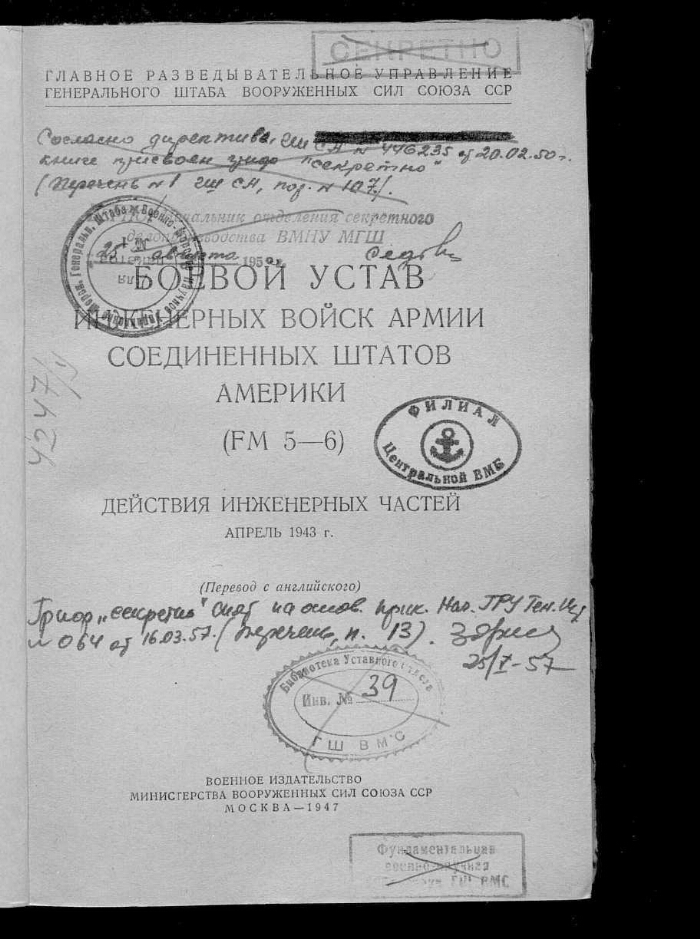 СЕКРЕТНО
ГЛАВНОЕ РАЗВЕДЫВАТЕЛЬНОЕ УПРАВЛЕНИЕ
ГЕНЕРАЛЬНОГО ШТАБА ВООРУЖЕННЫХ СИЛ СОЮЗА ССР
Согласно директивы ГШ СА № 446235 от 20.02.50 г.
книге присвоен гриф "секретно"
(Перечень №1 ГШ СА, поз. №107).
Начальник отделения секретного
делопроизводства ВМНУ МГШ
25 августа 195
БОЕВОЙ УСТАВ
ИНЖЕНЕРНЫХ ВОЙСК АРМИИ
СОЕДИНЕННЫХ ШТАТОВ
АМЕРИКИ
(FM 5—6)
4247
ФИЛИАЛ
Центральной ВМБ
ДЕЙСТВИЯ ИНЖЕНЕРНЫХ ЧАСТЕЙ
АПРЕЛЬ 1943 г.
(Перевод с английского)
Гриф „секретно" снят на основ. прик. Нач. ГРУ Ген. Шт
№ 064 от 16.03.57. (Перечень, п. 13).
25/I-57
Библиотека Уставного отдела
Инв. № 39
ГШ ВМС
ВОЕННОЕ ИЗДАТЕЛЬСТВО
МИНИСТЕРСТВА ВООРУЖЕННЫХ СИЛ СОЮЗА ССР
МОСКВА—1947
Фундаментальная
военно-научная
ГШ ВМС